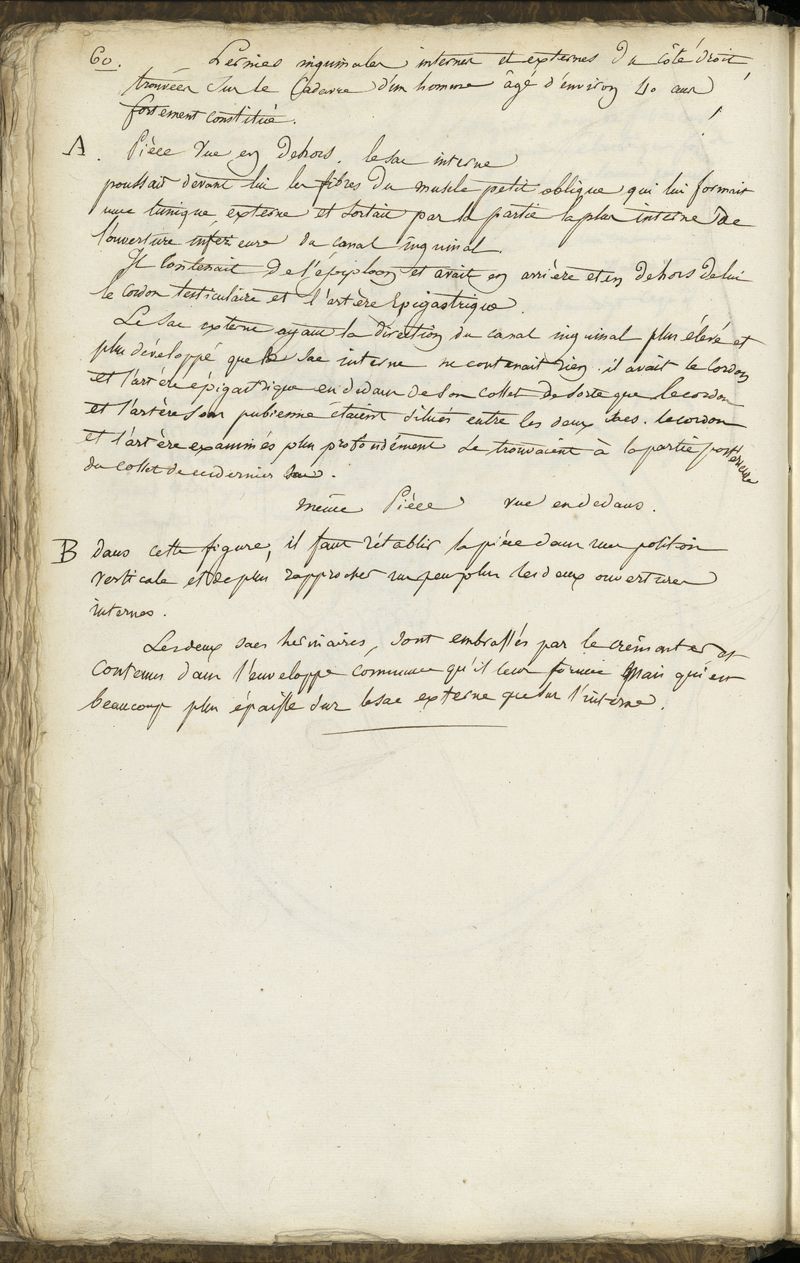 60. hernies inguinales internes et externes du côté droit
trouvées sur le Cadavre d'un homme âgé d'environ 40 ans
fortement constitué.
A. Pièce vue en dehors. le sac interne
poussait devant lui les fibres du muscle petit oblique qui lui formait
une tunique externe et sortait par la partie la plus interne de
l'ouverture inférieure du canal inguinal.
Il Contenait de l'épiploon et avait en arrière et en dehors de lui
le cordon testiculaire et l'artère Epigastrique.
Le sac externe ayant la direction du canal inguinal plus élevé et
plus développé que le sac interne ne contenait rien. il avait le Cordon
et l'artère épigastrique en dedans de son collet de sorte que le cordon
et l'artère sous pubienne étaient situés entre les deux sacs. le cordon
et l'artère examinés plus profondément se trouvaient à la partie postérieure
du collet de ce dernier sac.
même Pièce vue en dedans.
B dans cette figure, il faut rétablir la pièce dans une position
verticale et de plus rapprocher un peu plus les deux ouvertures
internes.
Les deux sacs herniaires, sont embrassés par le crémaster et
contenus dans l'enveloppe commune qu'il leur fournie Mais qui est
beaucoup plus épaisse sur le sac externe que sur l'interne.